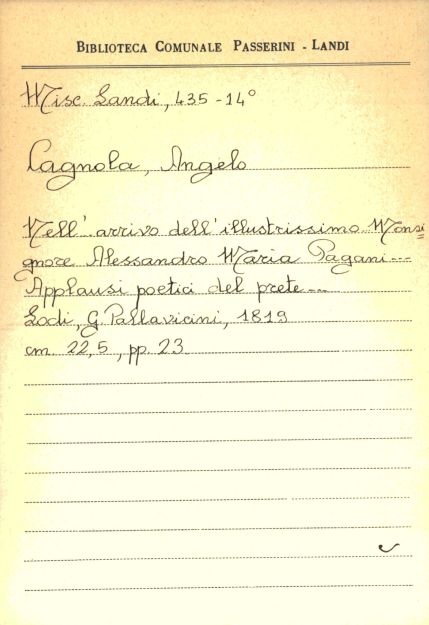 BIBLIOTECA COMUNALE PASSERINI - LANDI
Misc. Landi, 435 - 14°
Cagnola, Angelo
Nell'arrivo dell'illustrissimo Monsi=
gnore Alessandro Maria Pagani---
Applausi poetici del prete---
Lodi, G. Pallavicini, 1819
cm. 22,5, pp. 23